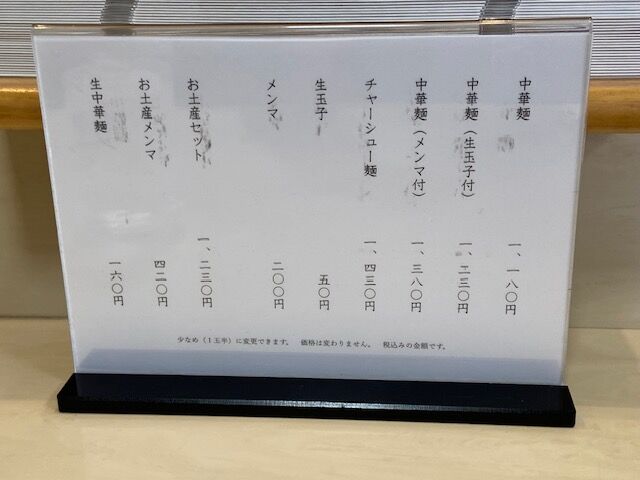 中華麺 一、一八〇円
中華麺（生玉子付） 一、二三〇円
中華麺（メンマ付） 一、三八〇円
チャーシュー麺 一、四三〇円
生玉子 五〇円
メンマ 二〇〇円
お土産セット 一、二三〇円
お土産メンマ 四二〇円
生中華麺 一六〇円
少なめ（１玉半）に変更できます。 価格は変わりません。 税込みの金額です。